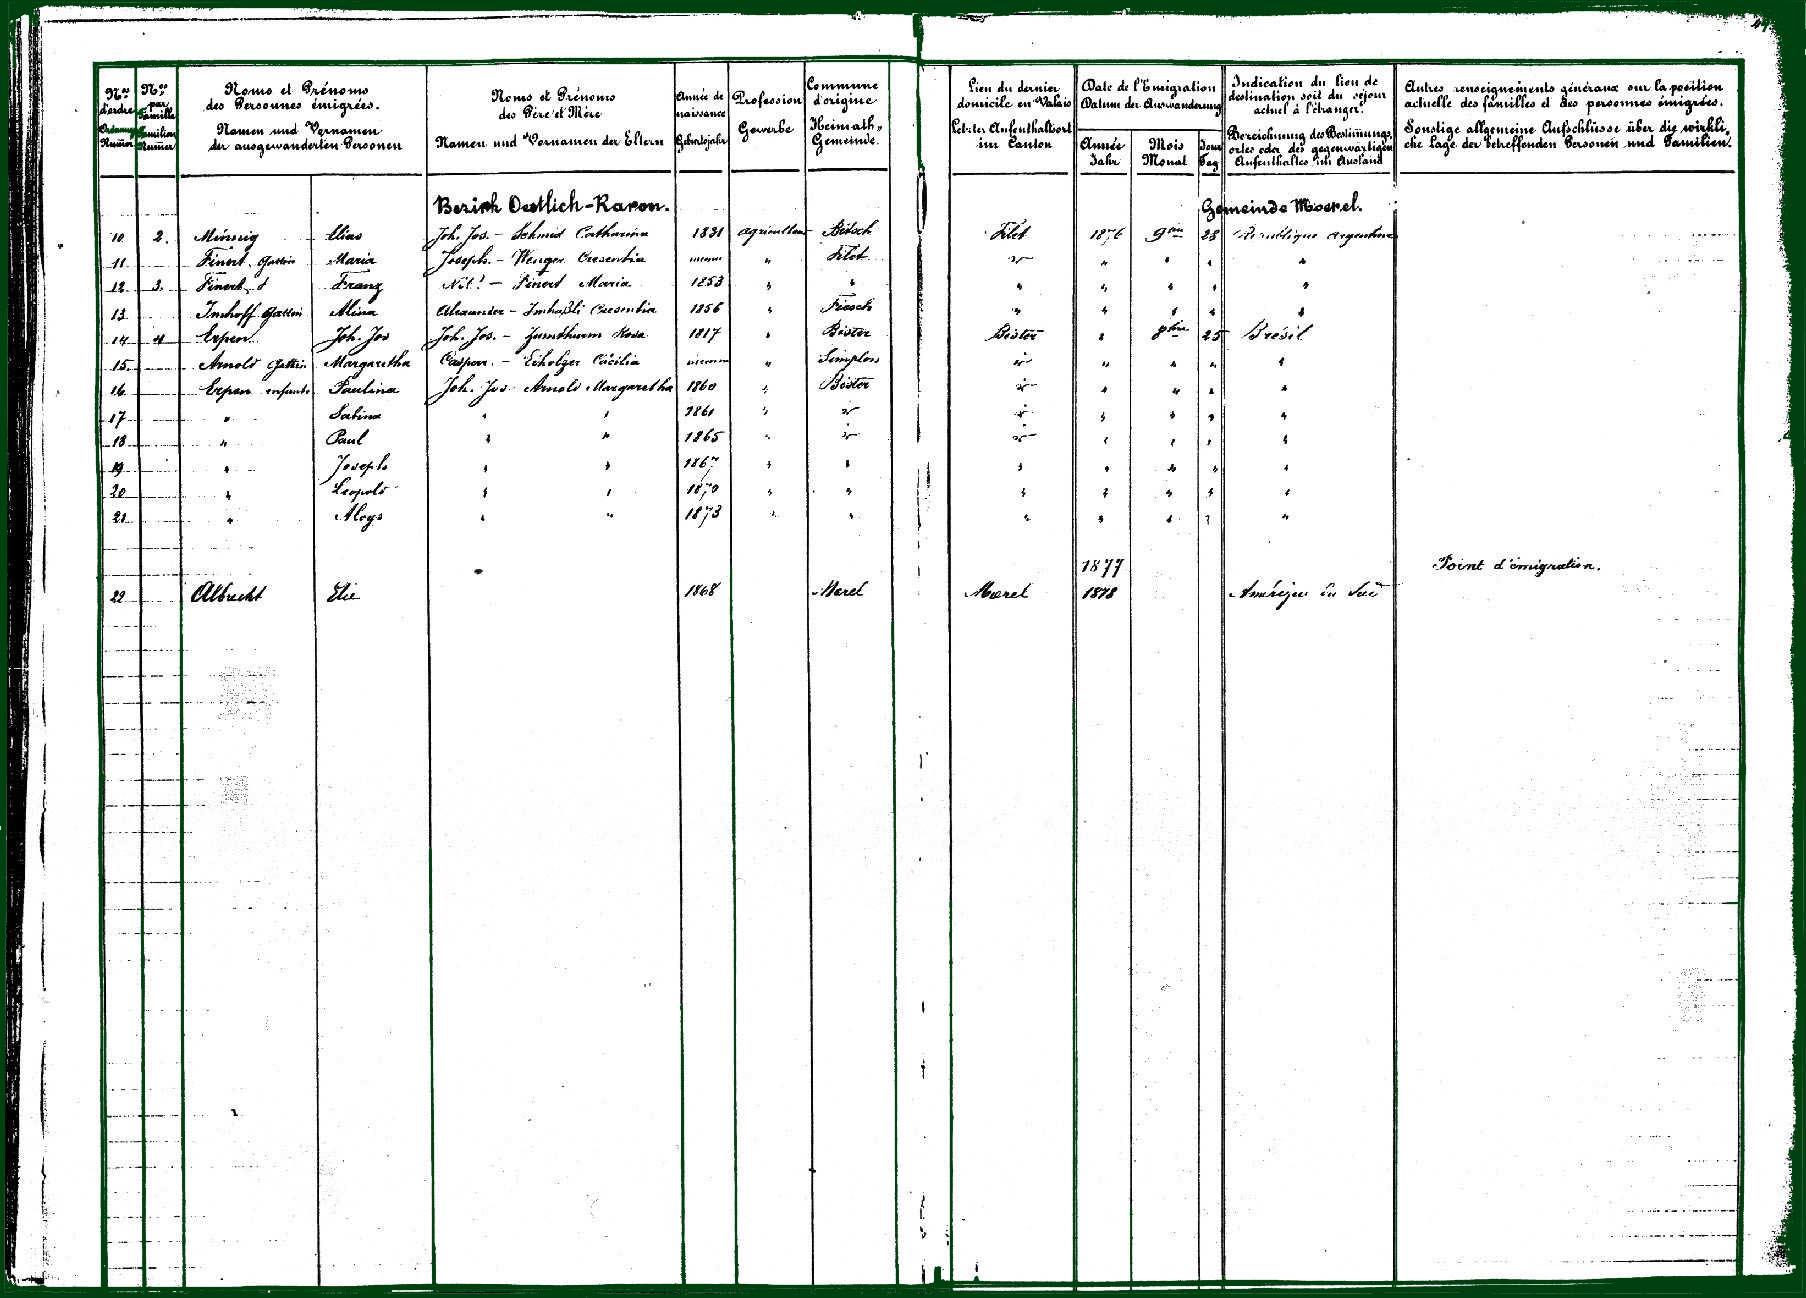 Nos d'ordre Ordnungs Numer
Nos par Famille Familien Numer
Noms et Prénoms des Personnes émigrées. Namen und Vornamen der ausgewanderten Personen
Noms et Prénoms des Père et Mère Namen und Vornamen der Eltern
Année de naissance Geburtsjahr
Profession Gewerbe
Commune d'origine Heimath-Gemeinde
Lieu du dernier domicile en Valais Letzter Aufenthaltsort im Canton
Date de l'Emigration Datum der Auswanderung
Année Jahr
Mois Monat
Jour Tag
Indication du lieu de destination soit du séjour actuel à l'étranger. Bezeichnung des Bestimungsortes oder des gegenwärtigen Aufenthaltes im Ausland
Autres renseignements généraux sur la position actuelle des familles et des personnes émigrées. Sonstige allgemeine Aufschlüsse über die wirkliche Lage der betreffenden Personen und Familien.
Bezirk Oestlich-Raron. Gemeinde Moerel.
10 2. Minnig Elias Joh. Jos. - Schmid Catharina 1831 agriculteur Bitsch Filet 1876 9bre 28 République argentine
11 Finert Gattin Maria Joseph. - Wenger Cresentia " Filet " " " " "
12 3. Finert Franz Nat! - Finert Maria 1853 " " " " " " "
13 Imhoff Gattin Alina Alexander - Imhasli Cresentia 1856 " Fiesch " " " " "
14 4 Erpen Joh. Jos Joh. Jos. - Zumthurm Rosa 1817 " Bister Bister " 8bre 25 Brésil
15 Arnold Gattin Margaretha Caspar. - Eiholzer Cäcilia " Simplon " " " "
16 Erpen enfants Paulina Joh. Jos Arnold Margaretha 1860 " Bister " " " "
17 " Sabina " " 1861 " " " " "
18 " Paul " " 1865 " " " " "
19 " Joseph " " 1867 " " " " " " "
20 " Leopold " " 1870 " " " " " " "
21 " Aloys " " 1873 " " " " " " "
1877 Point d'émigration.
22 Albrecht Elie 1868 Mœrel Mœrel 1878 Amérique du Sud